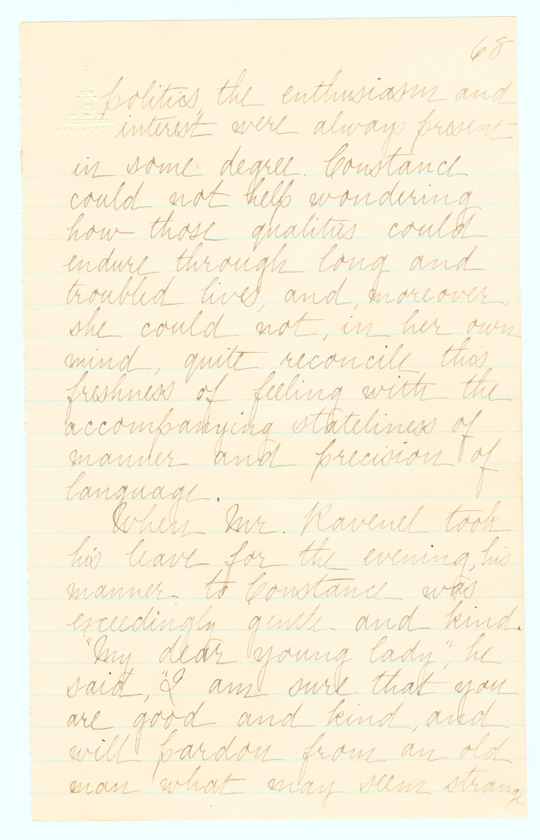 68
politics, the enthusiasm and
interest were always present
in some degree. Constance
could not help wondering
how those qualities could
endure through long and
troubled lives, and, moreover,
she could not, in her own
mind, quite reconcile this
freshness of feeling with the
accompanying stateliness of
manner and precision of
language.
When Mr. Ravenel took
his leave for the evening, his
manner to Constance was
exceedingly gentle and kind.
"My dear young lady", he
said, "I am sure that you
are good and kind, and
will pardon from an old
man what may seem strange